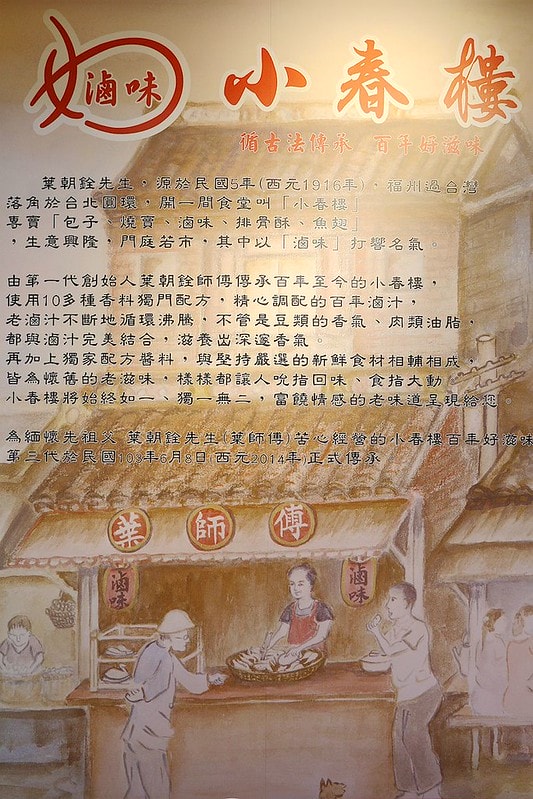 滷味
小春樓
循古法傳承 百年好滋味
葉朝銓先生，源於民國5年(西元1916年)，福州過台灣
落角於台北圓環，開一間食堂叫「小春樓」
專賣「包子、燒賣、滷味、排骨酥、魚翅」
，生意興隆，門庭若市，其中以「滷味」打響名氣。
由第一代創始人葉朝銓師傅傳承百年至今的小春樓，
使用10多種香料獨門配方，精心調配的百年滷汁，
老滷汁不斷地循環沸騰，不管是豆類的香氣、肉類油脂，
都與滷汁完美結合，滋養出深邃香氣。
再加上獨家配方醬料，與堅持嚴選的新鮮食材相輔相成，
皆為懷舊的老滋味，樣樣都讓人吮指回味、食指大動，
小春樓將始終如一、獨一無二，富饒情感的老味道呈現給您。
為緬懷先祖父 葉朝銓先生(葉師傅)苦心經營的小春樓百年好滋味
第三代於民國103年6月8日(西元2014年)正式傳承
葉師傅
滷味
滷味